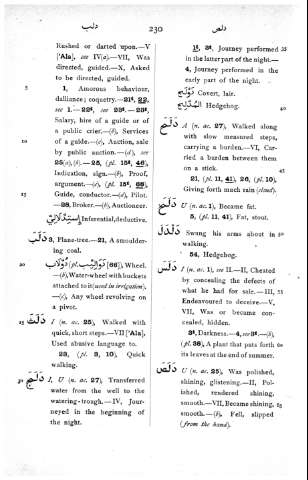 دلب
230
دلص
Rushed or darted upon.—V
['Ala], see IV(a)—VII, Was
directed, guided.—X, Asked
to be directed, guided.
5
1, Amorous behaviour,
dalliance; coquetry.—21ᵈ, 22,
see 1.—22ᵈ, see 23ᵈ.—23ᵈ,
Salary, hire of a guide or of
a public crier.—(b), Services
10
of a guide.—(c), Auction, sale
by public auction.—(d), see
25(a),(b).—25, (pl. 15ᵈ, 46),
Indication, sign.—(b), Proof,
argument.—(c), (pl. 15ᵈ, 66),
15
Guide, conductor.—(d), Pilot.
—28, Broker.—(b), Auctioneer.
إِسْتِدْلَالِيّ Inferential, deductive.
دلب 3, Plane-tree.—21, A smoulder-
ing coal.
20
دُولَاب (pl. دَوَالِيب [66]), Wheel.
—(b), Water-wheel with buckets
attached to it (used in irrigation).
—(c), Any wheel revolving on
a pivot.
25
دلث I (n. ac. 25), Walked with
quick, short steps.—VII ['Ala],
Used abusive language to.
23, (pl. 3, 10), Quick
walking.
30
دلج I, U (n. ac. 27), Transferred
water from the well to the
watering-trough.—IV, Jour-
neyed in the beginning of
the night.
1ᵗ, 3ᵗ, Journey performed
in the latter part of the night.—
4, Journey performed in the
early part of the night.
دَوْلَج Covert, lair.
المُدْلِج Hedgehog.
دلح A (n. ac. 27), Walked along
with slow measured steps,
carrying a burden.—VI, Car-
ried a burden between them
on a stick.
21, (pl. 11, 41), 26, (pl. 10),
Giving forth much rain (cloud).
دلخ U (n. ac. 1), Became fat.
5, (pl. 11, 41), Fat, stout.
دلدل Swung his arms about in
walking.
54, Hedgehog.
دلس I (n. ac. 1), see II.—II, Cheated
by concealing the defects of
what he had for sale.—III,
Endeavoured to deceive.—V,
VII, Was or became con-
cealed, hidden.
3ᵈ, Darkness.—4, see 3ᵈ.—(b),
(pl. 38), A plant that puts forth
its leaves at the end of summer.
دلص U (n. ac. 25), Was polished,
shining, glistening.—II, Pol-
ished, rendered shining,
smooth.—VII, Became shining,
smooth.—(b), Fell, slipped
(from the hand).